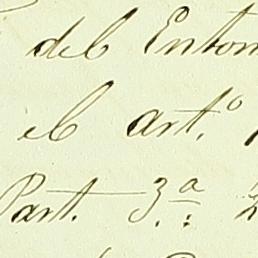 del Entom
el art.º
Part. 3.ª